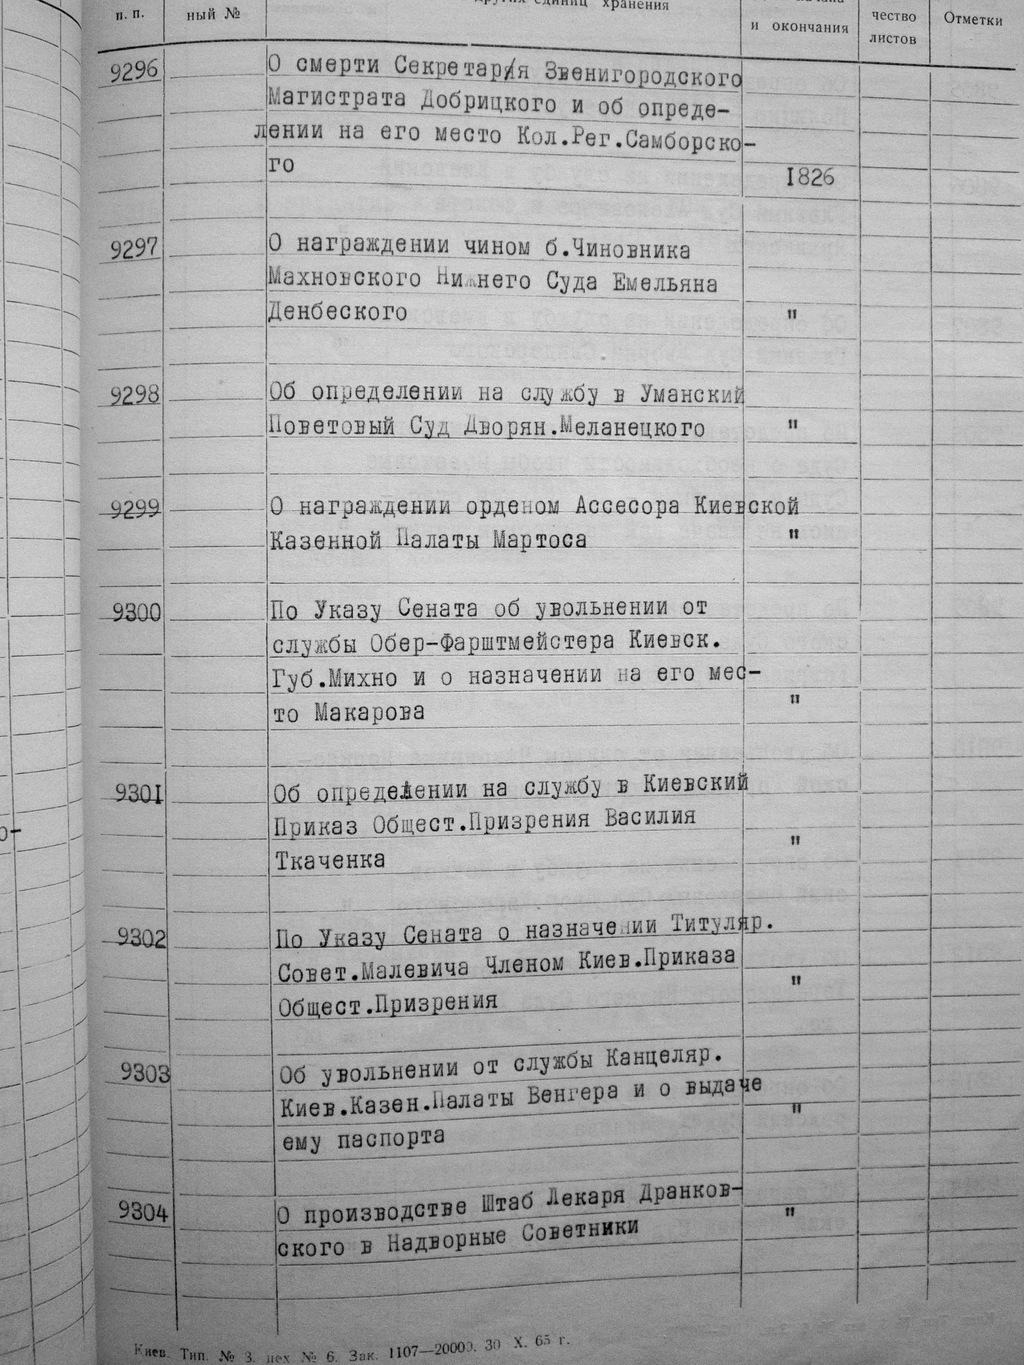 других единиц хранения
п. п.
ный №
и окончания
чество
листов
Отметки
9296 О смерти Секретаря Звенигородского
Магистрата Добрицкого и об опреде-
лении на его место Кол.Рег.Самборско-
го 1826
9297 О награждении чином б.Чиновника
Махновского Нижнего Суда Емельяна
Денбеского "
9298 Об определении на службу в Уманский
Поветовый Суд Дворян.Меланецкого "
9299 О награждении орденом Ассесора Киевской
Казенной Палаты Мартоса "
9300 По Указу Сената об увольнении от
службы Обер-Фарштмейстера Киевск.
Губ.Михно и о назначении на его мес-
то Макарова "
9301 Об определении на службу в Киевский
Приказ Общест.Призрения Василия
Ткаченка "
9302 По Указу Сената о назначении Титуляр.
Совет.Малевича Членом Киев.Приказа
Общест.Призрения "
9303 Об увольнении от службы Канцеляр.
Киев.Казен.Палаты Венгера и о выдаче
ему паспорта "
9304 О производстве Штаб Лекаря Дранков-
ского в Надворные Советники "
Киев. Тип. № 3. цех № 6. Зак. 1107—20000. 30 X. 65 г.